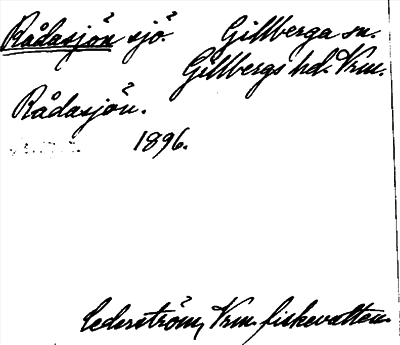 Rådasjön sjö. Gillberga sn.
Gillbergs hd. Vrm.
Rådasjön.
1896.
Cederström, Vrm. fiskevatten.